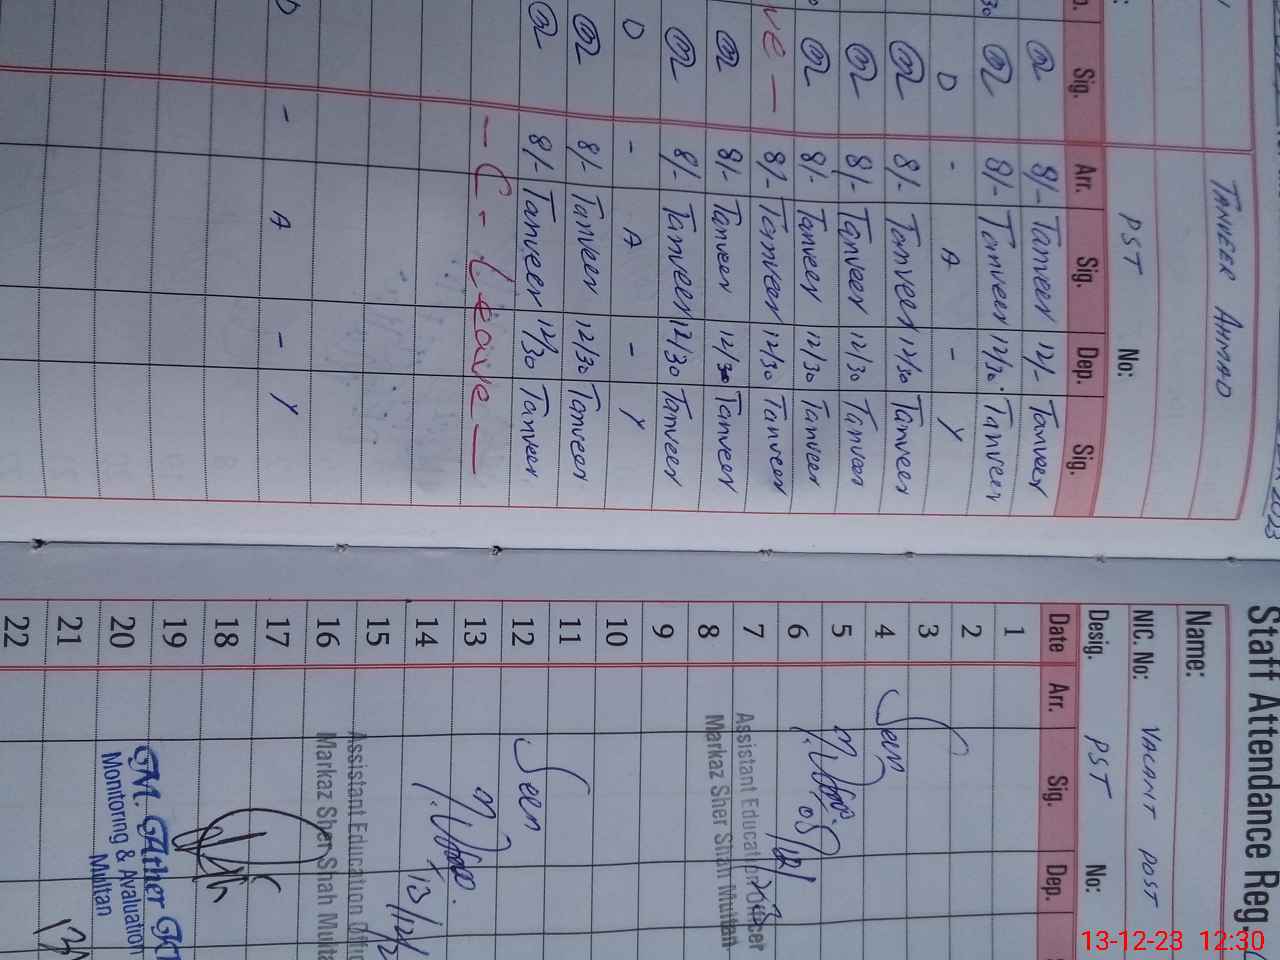 2023
TANVEER AHMAD
PST No:
Sig. Arr. Sig. Dep. Sig.
8/- Tanveer 12/- Tanveer
8/- Tanveer 12/30 Tanveer
D - A - Y
8/- Tanveer 12/30 Tanveer
8/- Tanveer 12/30 Tanveer
8/- Tanveer 12/30 Tanveer
ve — 8/- Tanveer 12/30 Tanveer
8/- Tanveer 12/30 Tanveer
8/- Tanveer 12/30 Tanveer
D - A - Y
8/- Tanveer 12/30 Tanveer
8/- Tanveer 12/30 Tanveer
— C - Leave —
D - A - Y
Staff Attendance Reg.
Name:
NIC. No: VACANT POST
Desig. PST No:
Date Arr. Sig. Dep.
1
2
3
4 Seen
5
6
7 Assistant Education Officer
8 Markaz Sher Shah Multan
9
10
11
12 Seen
13
14 13/12/2
15 Assistant Education Offic
16 Markaz Sher Shah Multa
17
18
19
20 Monitoring & Avaluation
Multan
21
22
13-12-23 12:30